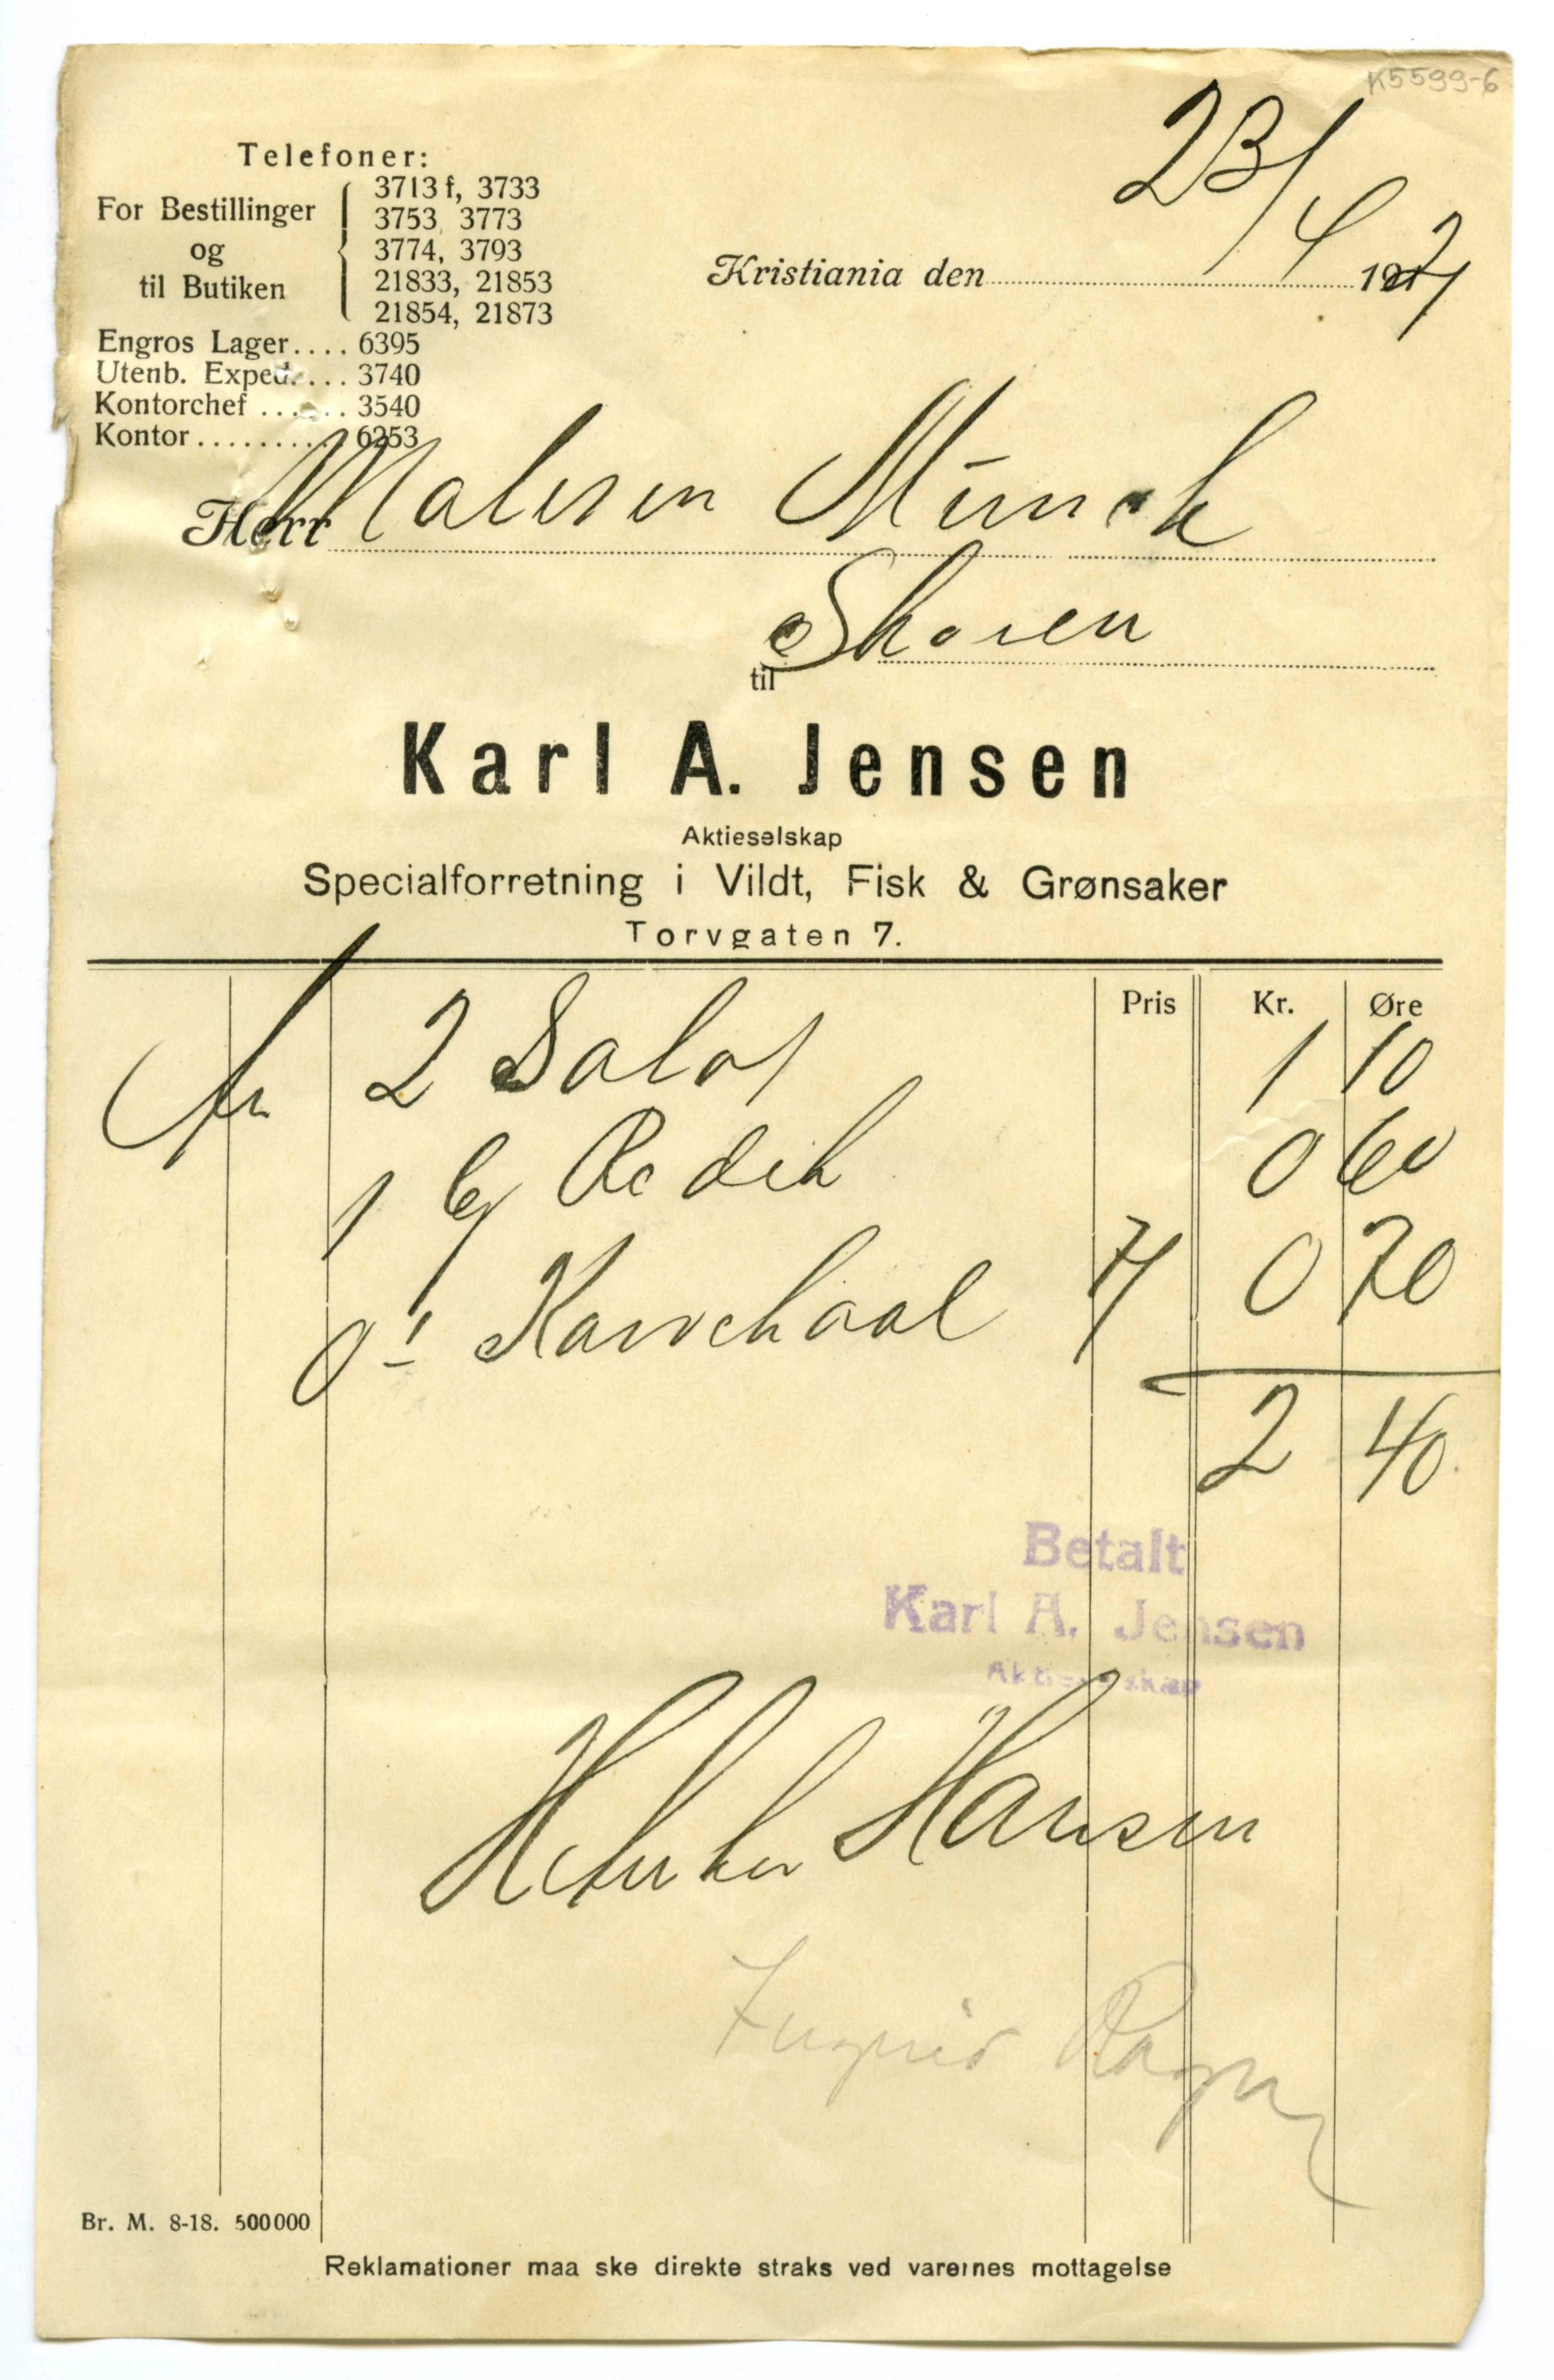 K5599-6
23/4
Telefoner:
For Bestillinger og til Butiken
3713 f, 3733
3753, 3773
3774, 3793
21833, 21853
21854, 21873
Engros Lager.... 6395
Utenb. Exped.... 3740
Kontorchef ...... 3540
Kontor.......... 6253
Kristiania den 192
Herr Maleren Munch
Skøien
til
Karl A. Jensen
Aktieselskap
Specialforretning i Vildt, Fisk & Grønsaker
Torvgaten 7.
Pris Kr. Øre
2 Salat 1 10
1 Redik 0 60
0¹ Kaal 7/ 0 70
2 40
Betalt
Karl A. Jensen
Aktieselskap
Hansen
Ingrid
Br. M. 8-18. 500000
Reklamationer maa ske direkte straks ved varernes mottagelse